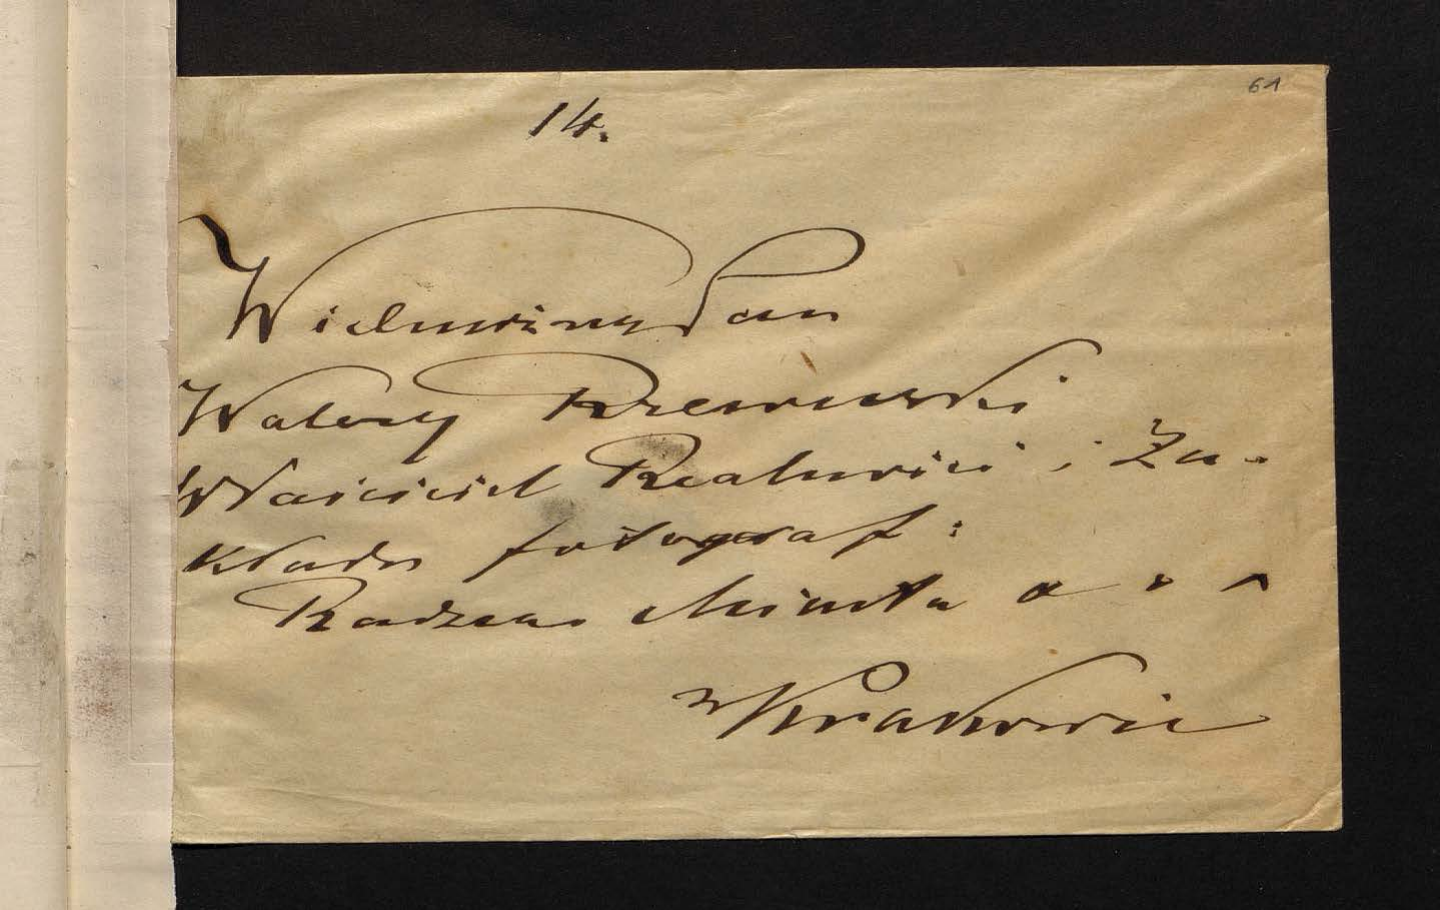 61
14.
Wielmożny Pan
Walery Rzewuski
Właściciel Realności i Za-
kładu fotograf:
Radzca Miasta
w Krakowie